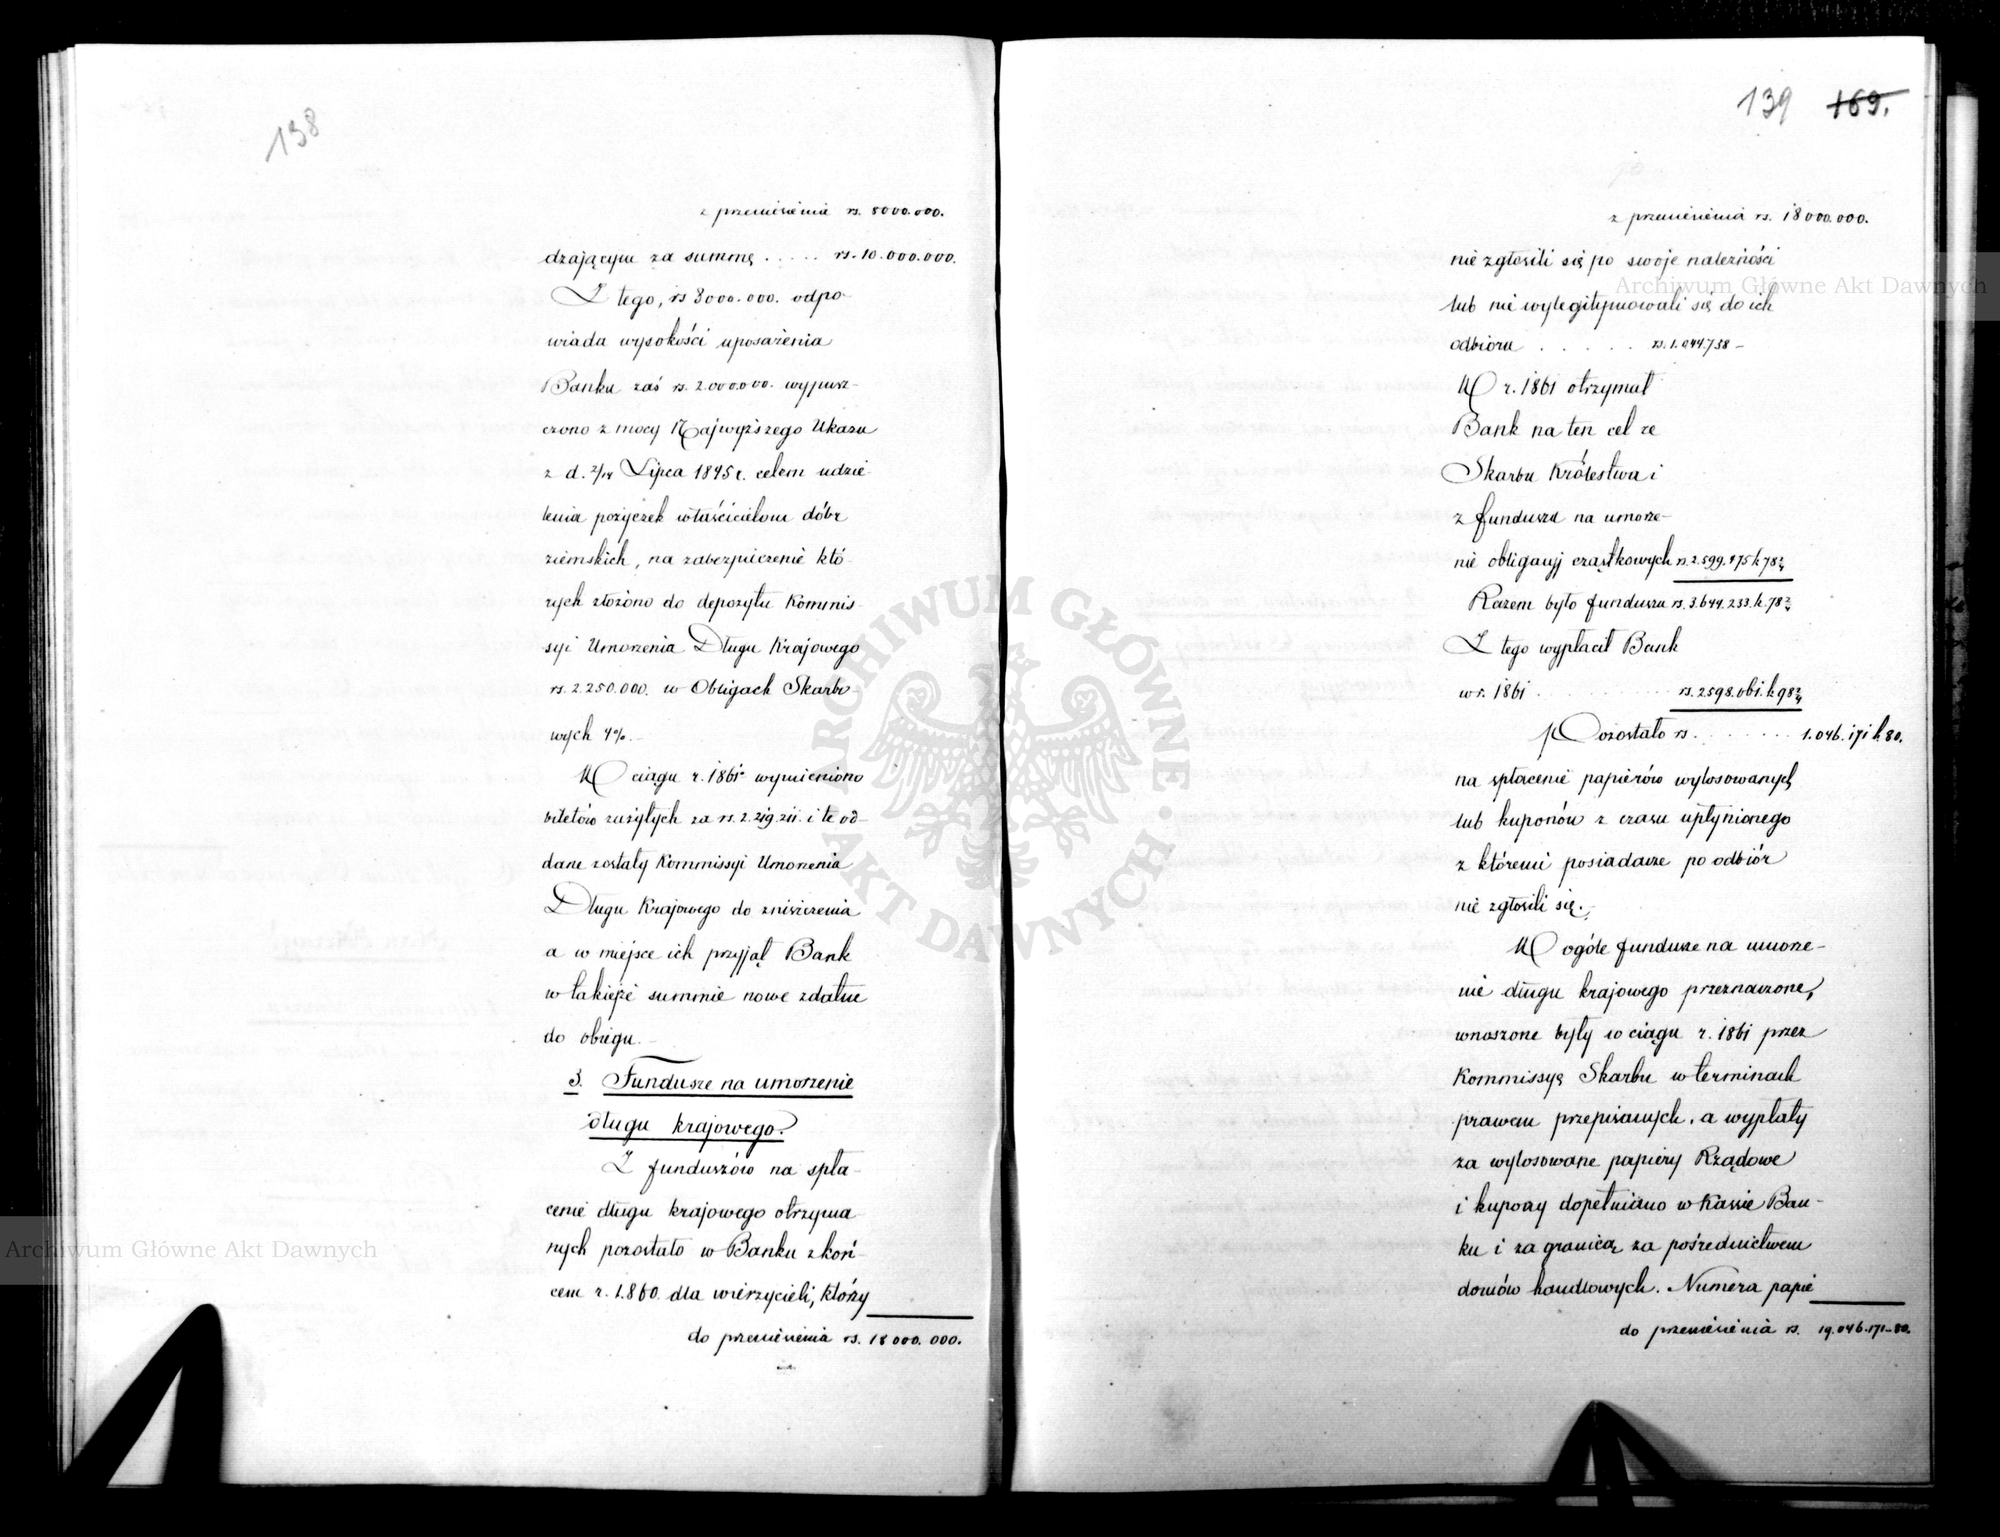 138
z przeniesienia rs. 8000.000.
dzającym za summę ..... rs. 10.000.000.
Z tego, rs 8000.000. odpo-
wiada wysokości uposażenia
Banku zaś rs. 2.000.000. wypusz-
czono z mocy Najwyższego Ukazu
z d. 2/14 Lipca 1845 r. celem udzie-
lenia pożyczek właścicielom dóbr
ziemskich, na zabezpieczenie któ-
rych złożono do depozytu Kommis-
syi Umorzenia Długu Krajowego
rs. 2.250.000. w Obligach Skarbo-
wych 4%.-
W ciągu r. 1861 wymieniono
biletów zużytych za rs. 2.219.211. i te od-
dane zostały Kommissyi Umorzenia
Długu Krajowego do zniszczenia
a w miejsce ich przyjął Bank
w takiejże summie nowe zdatne
do obiegu.-
3. Fundusze na umorzenie
długu krajowego.
Z funduszów na spła-
cenie długu krajowego otrzyma-
nych pozostało w Banku z koń-
cem r. 1860. dla wierzycieli, którzy
do przeniesienia rs. 18000.000.
139 169.
z przeniesienia rs. 18000.000.
nie zgłosili się po swoje należności
lub nie wylegitymowali się do ich
odbioru ..... rs. 1.044.758 -
W r. 1861 otrzymał
Bank na ten cel ze
Skarbu Królestwa i
z funduszu na umorze-
nie obligacyj cząstkowych rs. 2.599.475 k 78 2/4
Razem było funduszu rs. 3.644.233. k. 78 2/4
Z tego wypłacił Bank
w r. 1861 ......... rs. 2598.061. k 98 2/4
Pozostało rs. ....... 1.046.171 k. 80.
na spłacenie papierów wylosowanych
lub kuponów z czasu upłynionego
z któremi posiadacze po odbiór
nie zgłosili się.-
W ogóle fundusze na umorze-
nie długu krajowego przeznaczone,
wnoszone były w ciągu r. 1861 przez
Kommissyę Skarbu w terminach
prawem przepisanych, a wypłaty
za wylosowane papiery Rządowe
i kupony dopełniano w Kassie Ban-
ku i za granicą za pośrednictwem
domów handlowych. Numera papie
do przeniesienia rs. 19.046.171-80.
Archiwum Główne Akt Dawnych
Archiwum Główne Akt Dawnych
ARCHIWUM GŁÓWNE · AKT DAWNYCH ·